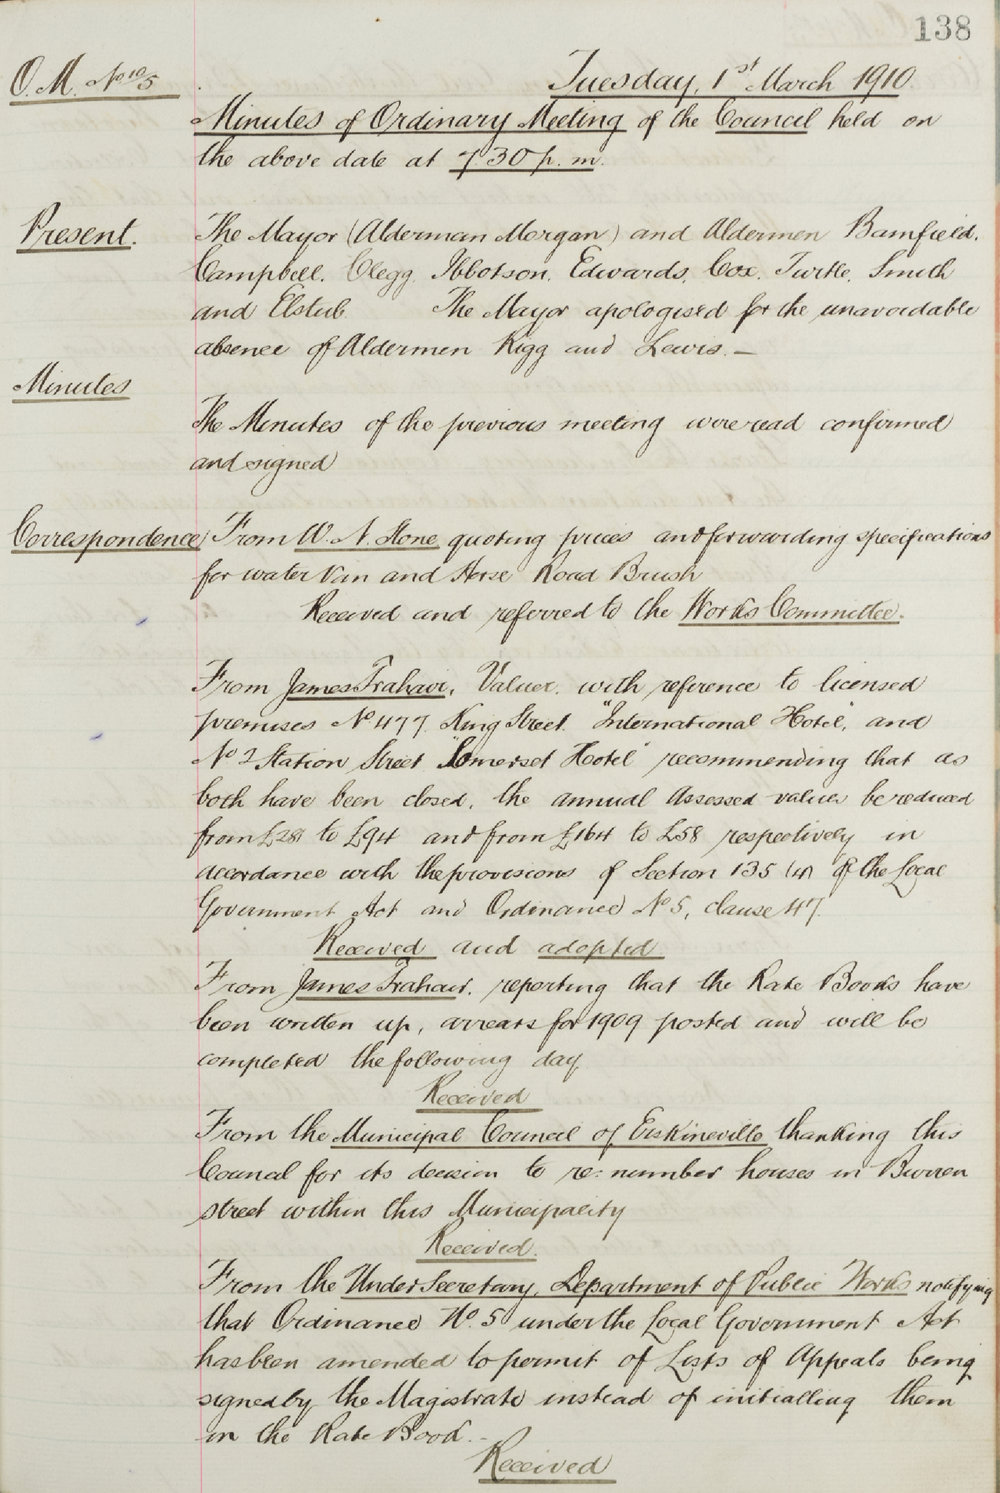 138
O. M. No 10/5
Tuesday, 1st March 1910.
Minutes of Ordinary Meeting of the Council held on
the above date at 7.30 p.m.
Present.
The Mayor (Alderman Morgan) and Aldermen Bamfield,
Campbell, Clegg, Ibbotson, Edwards, Cox, Turtle, Smith
and Elstub. The Mayor apologised for the unavoidable
absence of Aldermen Rigg and Lewis. —
Minutes
The Minutes of the previous meeting were read confirmed
and signed
Correspondence
From W. N. Stone quoting prices and forwarding specifications
for water Van and Horse Road Brush
Received and referred to the Works Committee.
From James Trahair, Valuer, with reference to licensed
premises No 477 King Street "International Hotel", and
No 2 Station Street "Somerset Hotel" recommending that as
both have been closed, the annual Assessed values be reduced
from £281 to £94 and from £164 to £58 respectively in
accordance with the provisions of Section 135 (4) of the Local
Government Act and Ordinance No 5, clause 47.
Received and adopted
From James Trahair, reporting that the Rate Books have
been written up, arrears for 1909 posted and will be
completed the following day
Received
From the Municipal Council of Erskineville thanking this
Council for its decision to re-number houses in Burren
street within this Municipality
Received.
From the Under Secretary, Department of Public Works notifying
that Ordinance No. 5 under the Local Government Act
has been amended to permit of Lists of Appeals being
signed by the Magistrate instead of initialling them
in the Rate Book. -
Received